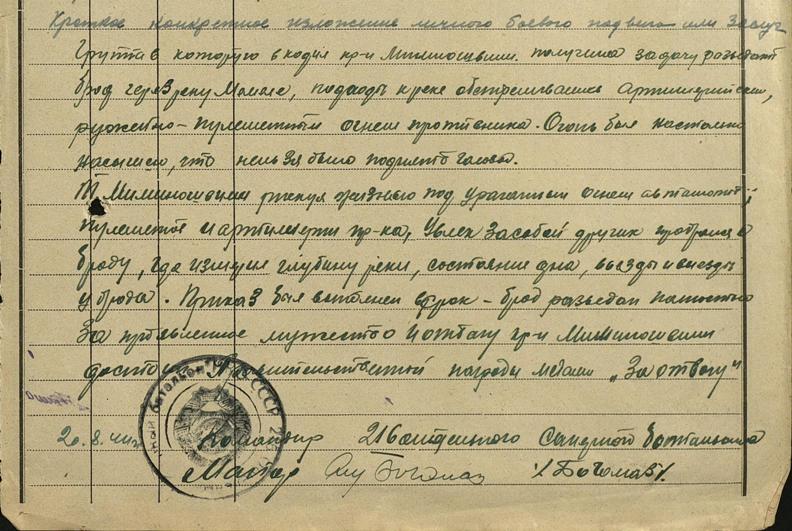 Краткое конкретное изложение личного боевого подвига или заслуг
Группа в которую входил кр-ц Миминошвили. получила задачу разведать
брод через реку
подходы к реке обстреливались артиллерийским,
ружейно-пулеметным огнем противника. Огонь был настолько
насыщен, что нельзя было поднять голову.
Т Миминошвили рискуя жизнью под ураганным огнем автоматов,
пулеметов и артиллерии пр-ка, увлек за собой других пробрался к
броду, где изучил глубину реки, состояние дна, въезды и выезды
у брода. Приказ был выполнен в срок - брод разведан полностью
За проявленное мужество и отвагу кр-ц Миминошвили
достоин Правительственной награды медали „За отвагу"
батальон СССР
20.8.
Командир 216 отдельного Саперного батальона
Майор /Богомаз/.